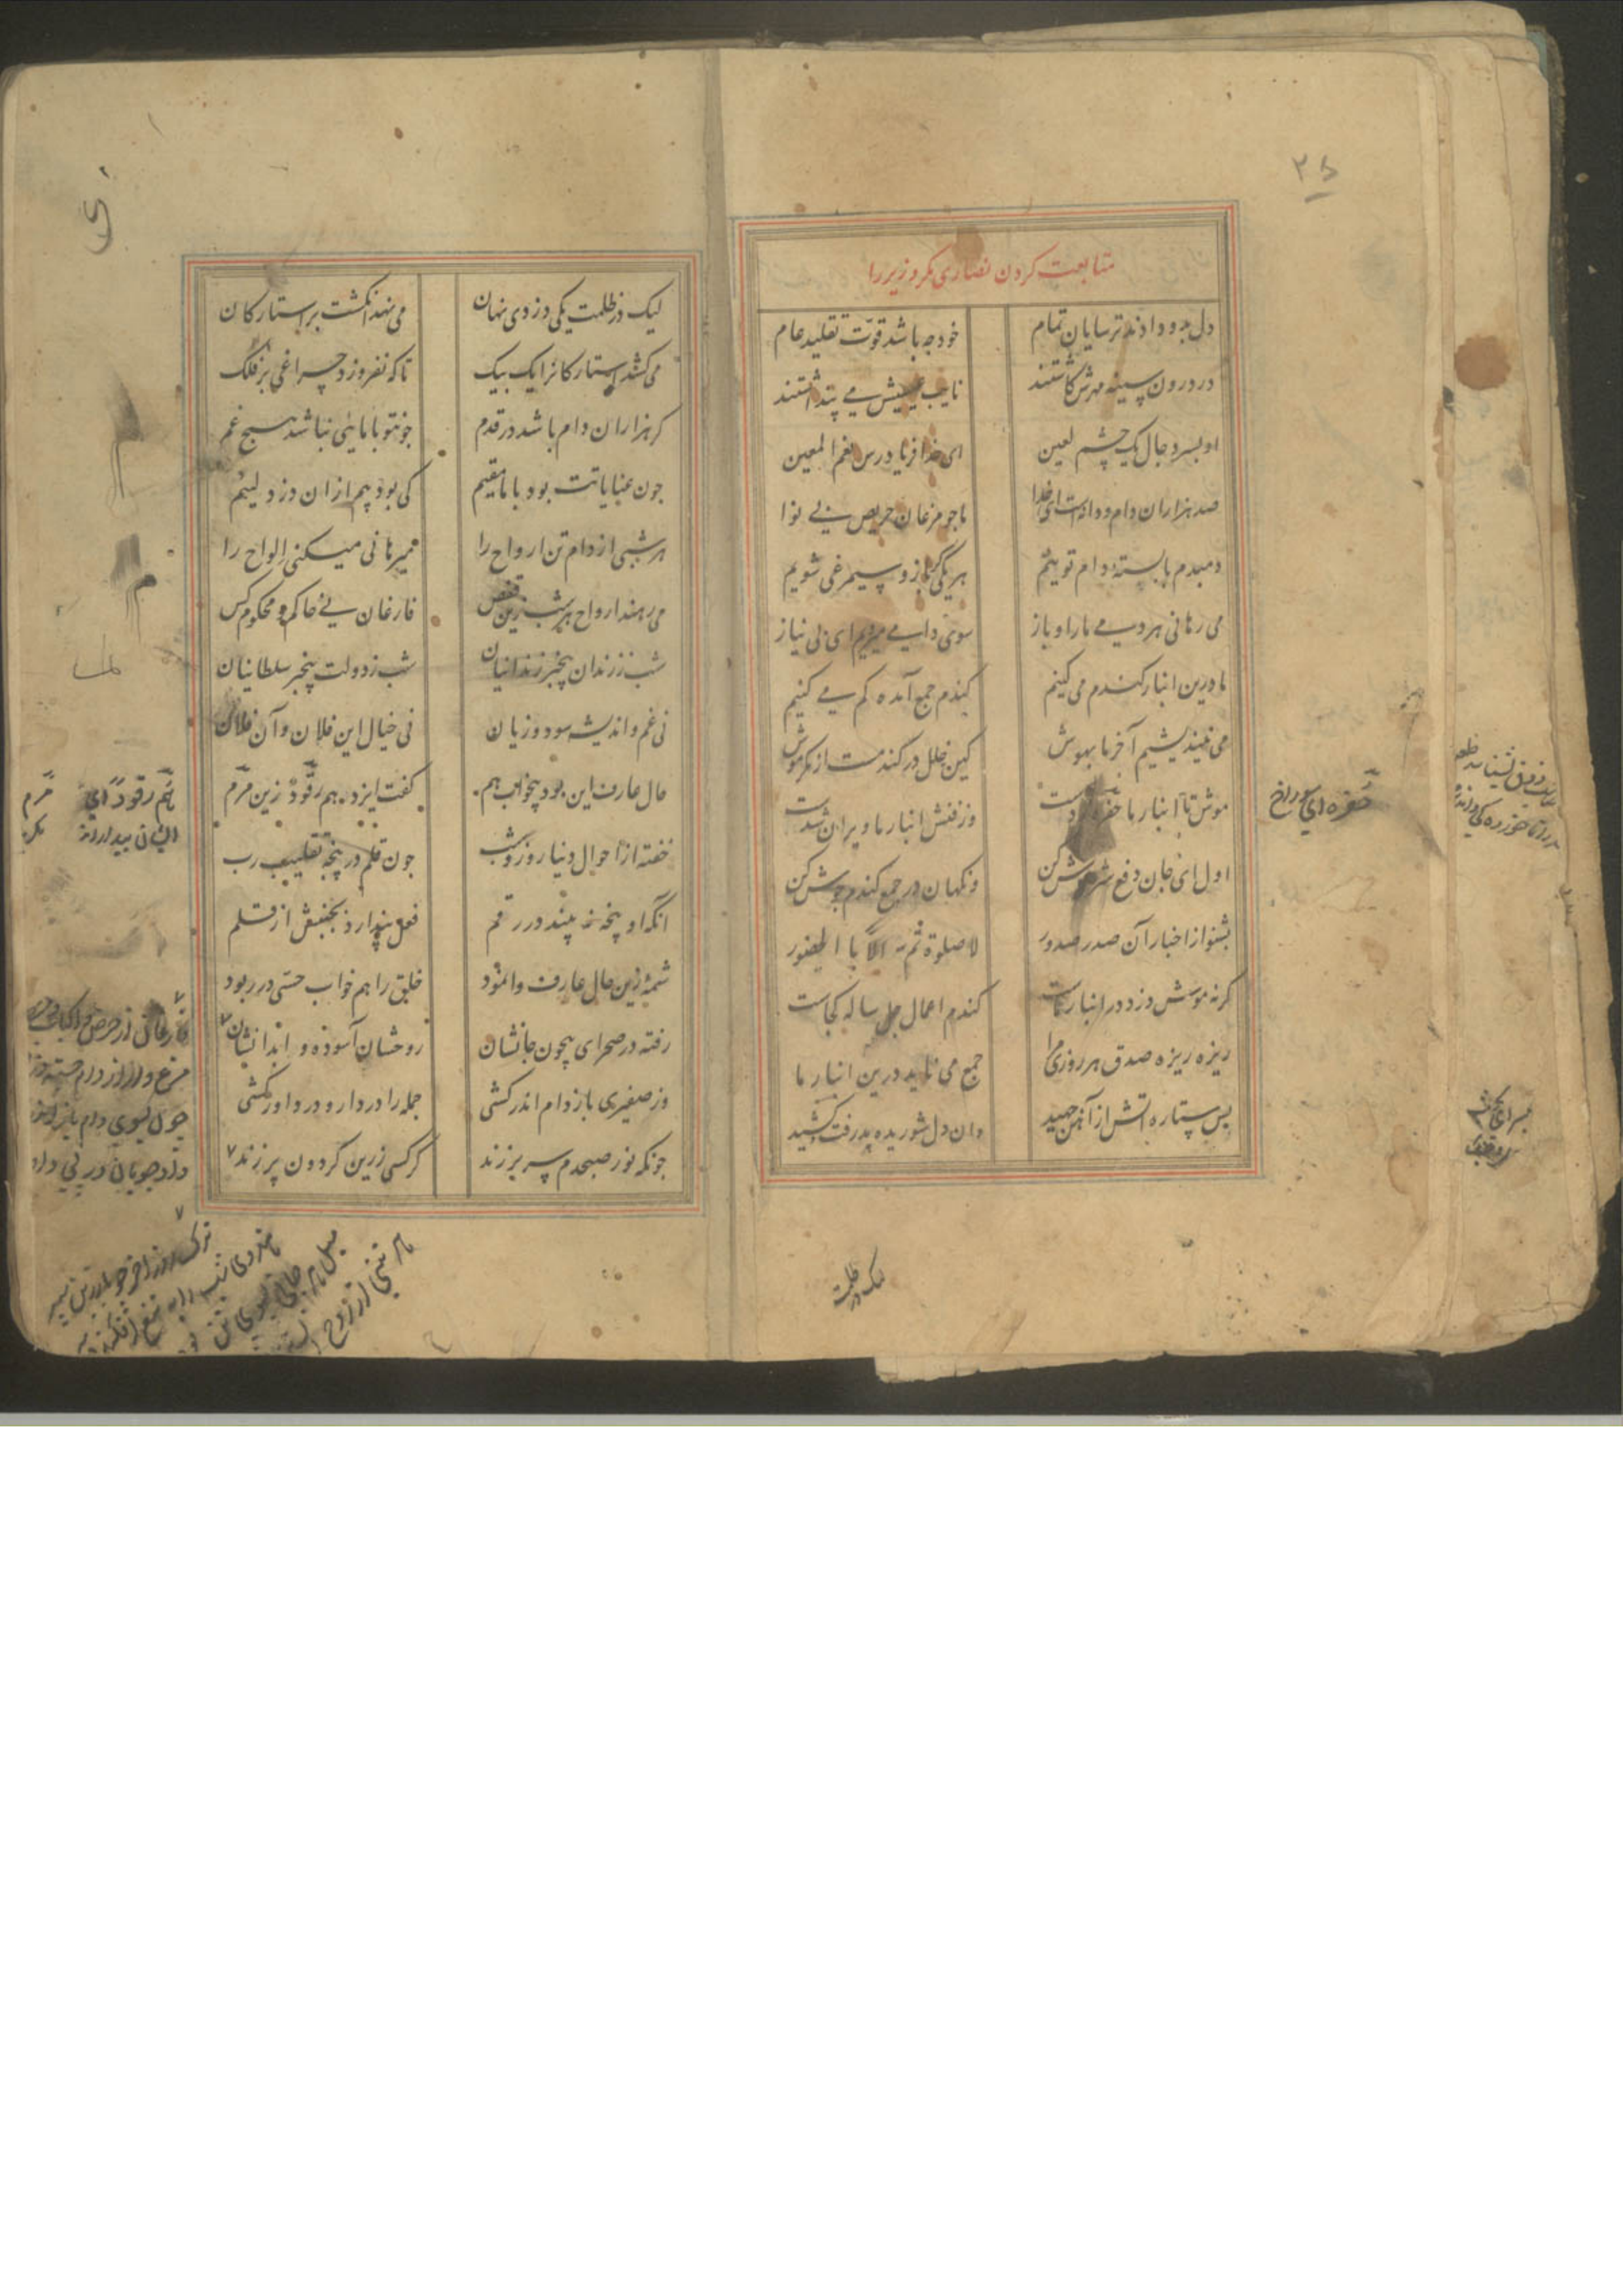 ۲۵
متابعت کردن نصاری مکر وزیر را
دل بدو دادند ترسایان تمام خود چه باشد قوّت تقلید عام
در درون سینه مهرش کاشتند نایب عیسیش می پنداشتند
او بسر دجال یک چشم لعین ای خدا فریاد رس نعم المعین
صد هزاران دام و دانه است ای خدا ما جو مرغان حریص بی نوا
دمبدم پابسته دام توییم هر یکی گر باز و سیمرغی شویم
می رهانی هر دمی ما را و باز سوی دامی می رویم ای بی نیاز
ما درین انبار کندم می کنیم کندم جمع آمده کم می کنیم
می نیندیشیم آخر ما بهوش کین خلل در کندمست از مکر موش
موش تا انبار ما حفره زدست وز فنش انبار ما ویران شدست
اول ای جان دفع شر موش کن ونکهان در جمع کندم جوش کن
بشنو از اخبار آن صدر صدور لا صلوة ثمّ الّا با الحضور
کرنه موشی دزد در انبار ماست کندم اعمال چل ساله کجاست
ریزه ریزه صدق هر روزی چرا جمع می ناید درین انبار ما
بس ستاره آتش از آهن جهید وان دل شوریده پذرفت و کشید
حفره ای سوراخ
لیک در ظلمت
لیک در ظلمت یکی دزدی نهان می نهد انکشت بر استارکان
می کشد استارکانرا یک بیک تا که نفروزد چراغی بر فلک
کر هزاران دام باشد در قدم جو نتو با مایی نباشد هیچ غم
جون عنایاتت بود با ما مقیم کی بود بیم از ان دزد لئیم
هر شبی از دام تن ارواح را میرهانی میکنی الواح را
می رهند ارواح هر شب زین قفص فارغان بی حاکم و محکوم کس
شب ز زندان بیخبر زندانیان شب ز دولت بیخبر سلطانیان
نی غم و اندیشه سود و زیان نی خیال این فلان و آن فلان
حال عارف این بود بیخواب هم کفت ایزد هم رقود زین مرم
خفته از احوال دنیا روز و شب جون قلم در پنجه تقلیب رب
انکه او پنجه نه بیند در رقم فعل پندارد بجنبش از قلم
شمهٔ زین حال عارف وانمود خلق را هم خواب حسّی در ربود
رفته در صحرای بیچون جانشان روحشان آسوده و ابدانشان
وز صفیری باز دام اندر کشی جمله را در دار و در داور کشی
جونکه نور صبحدم سر بر زند کرکس زرین کردون پر زند
هم رقود ای
مرم
ایشان بیدارانه
فارغان از حرص و اکباب و حصص
مرغ وار از دام جسته
چون بسوی دام باز
داد جویان در پی داد
ترک روز آخر چو با زرین سپر
هندوی شب را به تیغ افکند سر
میل هر جانی بسوی تن بود
هر تنی از روح